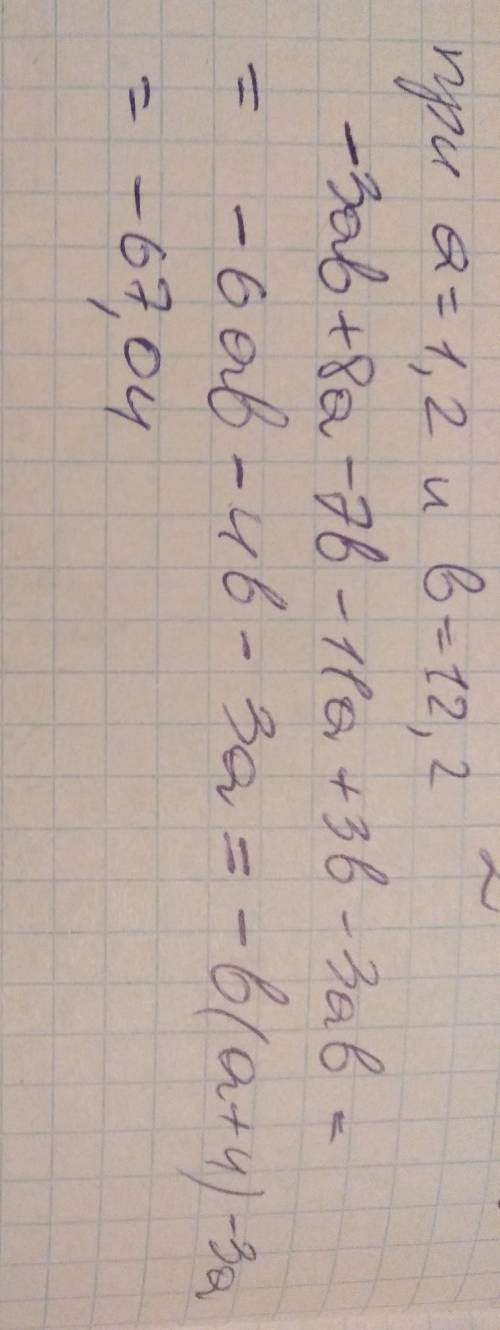 при a = 1,2 и b = 12,2
-3ab + 8a - 7b - 11a + 3b - 3ab =
= -6ab - 4b - 3a = -b(a+4) -3a
= -67,04